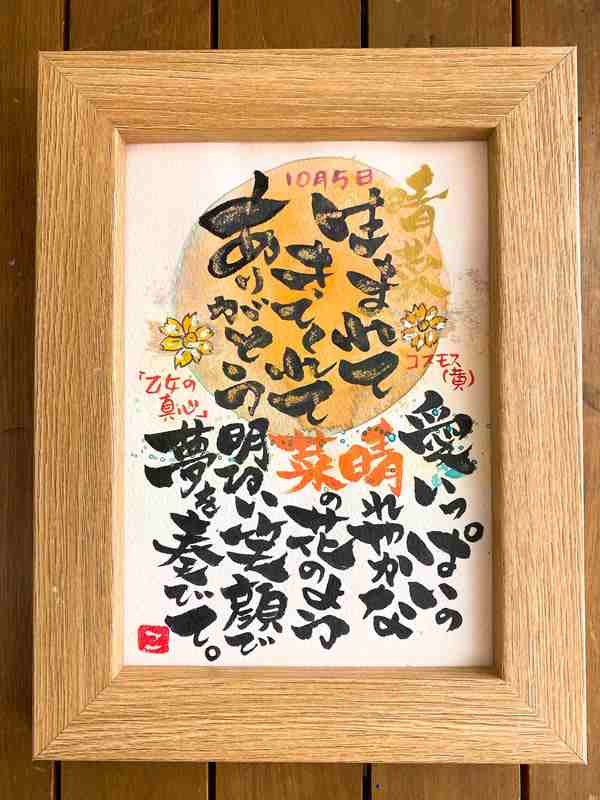 10月5日
晴菜
うまれて
きてくれて
ありがとう
コスモス
(黄)
「乙女の
真心」
愛いっぱいの
晴れやかな
菜の花のよう
明るい笑顔で
夢を奏でて。
こ